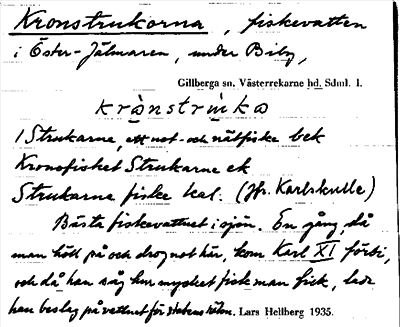 Kronstrukorna, fiskevatten
i Öster-Jälmaren, under Biby,
Gillberga sn. Västerrekarne hd. Sdml. 1.
krònstrùka
1 Strukarne, ett not- och nätfiske bek
Kronofisket Strukarne ek
Strukarne fiske kal. (Jfr. Karlskulle)
Bästa fiskevattnet i sjön. En gång, då
man höll på och drog not här, kom Karl XI förbi,
och då han såg hur mycket fisk man fick, lade
han beslag på vattnet för statens räkn. Lars Hellberg 1935.